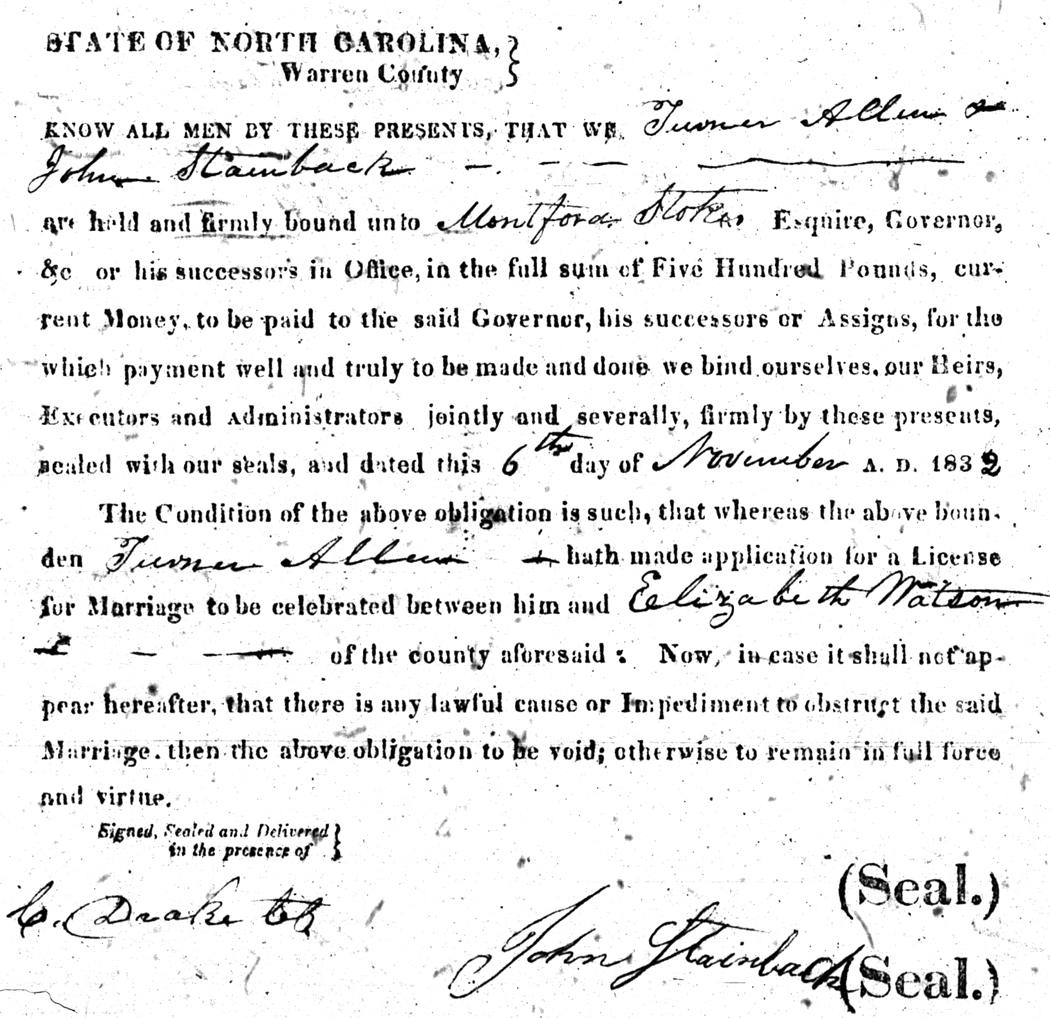 STATE OF NORTH CAROLINA,
Warren County
KNOW ALL MEN BY THESE PRESENTS, THAT WE Turner Allen &
John Stainback
are held and firmly bound unto Montford Stokes Esquire, Governor,
&c or his successors in Office, in the full sum of Five Hundred Pounds, cur-
rent Money, to be paid to the said Governor, his successors or Assigns, for the
which payment well and truly to be made and done we bind ourselves, our Heirs,
Executors and Administrators jointly and severally, firmly by these presents,
sealed with our seals, and dated this 6th day of November A. D. 1832
The Condition of the above obligation is such, that whereas the above boun-
den Turner Allen hath made application for a License
for Marriage to be celebrated between him and Elizabeth Watson
of the county aforesaid: Now, in case it shall not ap-
pear hereafter, that there is any lawful cause or Impediment to obstruct the said
Marriage, then the above obligation to be void; otherwise to remain in full force
and virtue.
Signed, Sealed and Delivered
in the presence of
(Seal.)
C. Drake
John Stainback (Seal.)